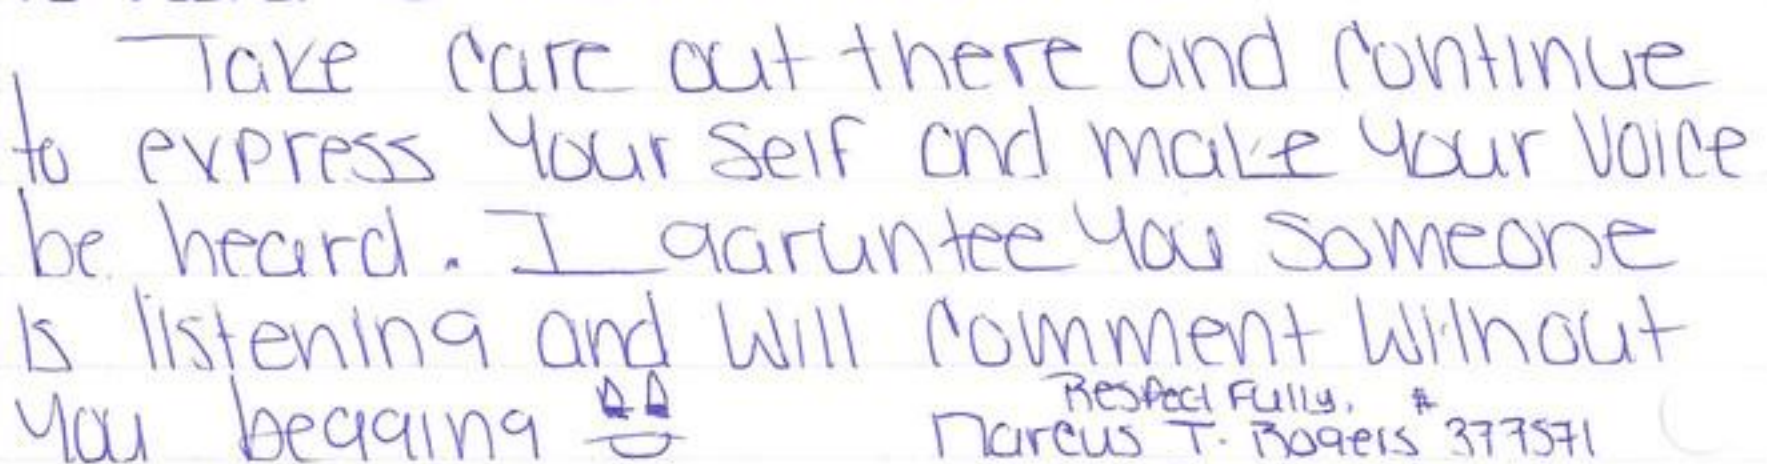 Take care out there and continue
to express your self and make your voice
be heard. I garuntee you someone
is listening and will comment without
you begging
Respect Fully,
Marcus T. Rogers #377571